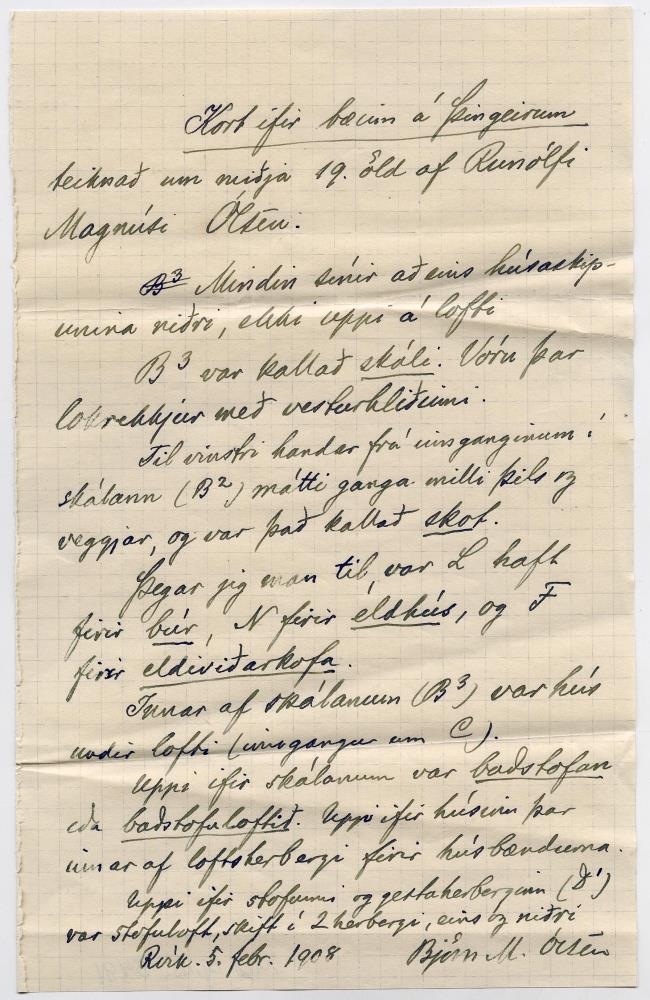 Kort ifir bæinn á Þingeirum
teiknað um miðja 19. öld af Runólfi
Magnúsi Ólsen.
B3 Mindin sínir aðeins húsaskip-
unina niðri, ekki uppi á lofti
B3 var kallað skáli. Vóru þar
lokrekkjur með vesturhliðinni.
Til vinstri handar frá innganginum í
skálann (B2) mátti ganga milli þils og
veggjar, og var það kallað skot.
Þegar jeg man til, var L haft
firir búr, N firir eldhús, og F
firir eldiviðarkofa.
Innar af skálanum (B3) var hús
undir lofti (inngangur um C).
Uppi ifir skálanum var baðstofan
eða baðstofuloftið. Uppi ifir húsinu þar
innar af loftsherbergi firir húsbændurna.
Uppi ifir stofunni og gestaherberginu (D')
var stofuloft, skift í 2 herbergi, eins og niðri
Rvík. 5. febr. 1908 Björn M. Ólsen